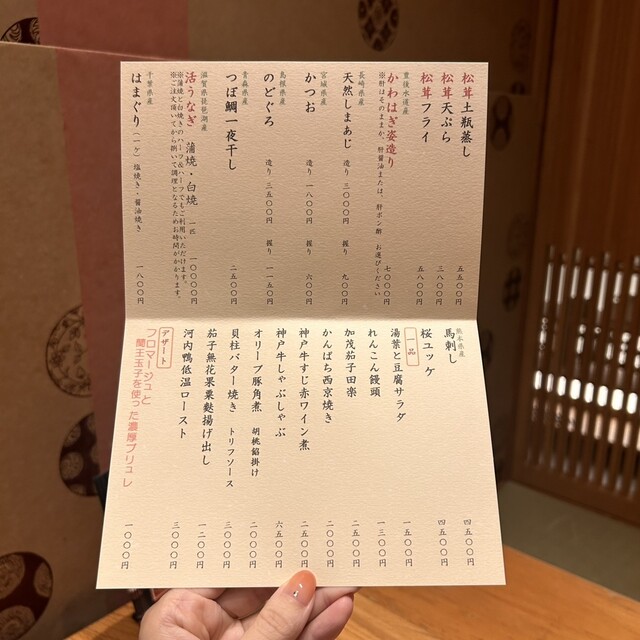 松茸土瓶蒸し 五五〇〇円
松茸天ぷら 三八〇〇円
松茸フライ 五八〇〇円
豊後水道産
かわはぎ姿造り 七〇〇〇円
※肝はそのままか、肝醤油または、肝ポン酢 お選びください
長崎県産
天然しまあじ 造り 三〇〇〇円 握り 九〇〇円
宮城県産
かつお 造り 一八〇〇円 握り 六〇〇円
島根県産
のどぐろ 造り 三五〇〇円 握り 一一五〇円
青森県産
つぼ鯛一夜干し 二五〇〇円
滋賀県琵琶湖産
活うなぎ 蒲焼・白焼 一匹 一〇〇〇〇円
※蒲焼と白焼きのハーフ&ハーフでもご利用いただけます。
※ご注文頂いてから捌いて調理となるためお時間がかかります。
千葉県産
はまぐり(一ヶ) 塩焼き・醤油焼き 一八〇〇円
熊本県産
馬刺し 四五〇〇円
桜ユッケ 四五〇〇円
一品
湯葉と豆腐サラダ 一五〇〇円
れんこん饅頭 一三〇〇円
加茂茄子田楽 二五〇〇円
かんぱち西京焼き 二〇〇〇円
神戸牛すじ赤ワイン煮 二五〇〇円
神戸牛しゃぶしゃぶ 六五〇〇円
オリーブ豚角煮 胡桃餡掛け 二〇〇〇円
貝柱バター焼き トリフソース 三〇〇〇円
茄子無花果粟麩揚げ出し 一二〇〇円
河内鴨低温ロースト 三〇〇〇円
デザート
フロマージュと
蘭王玉子を使った濃厚ブリュレ 一〇〇〇円